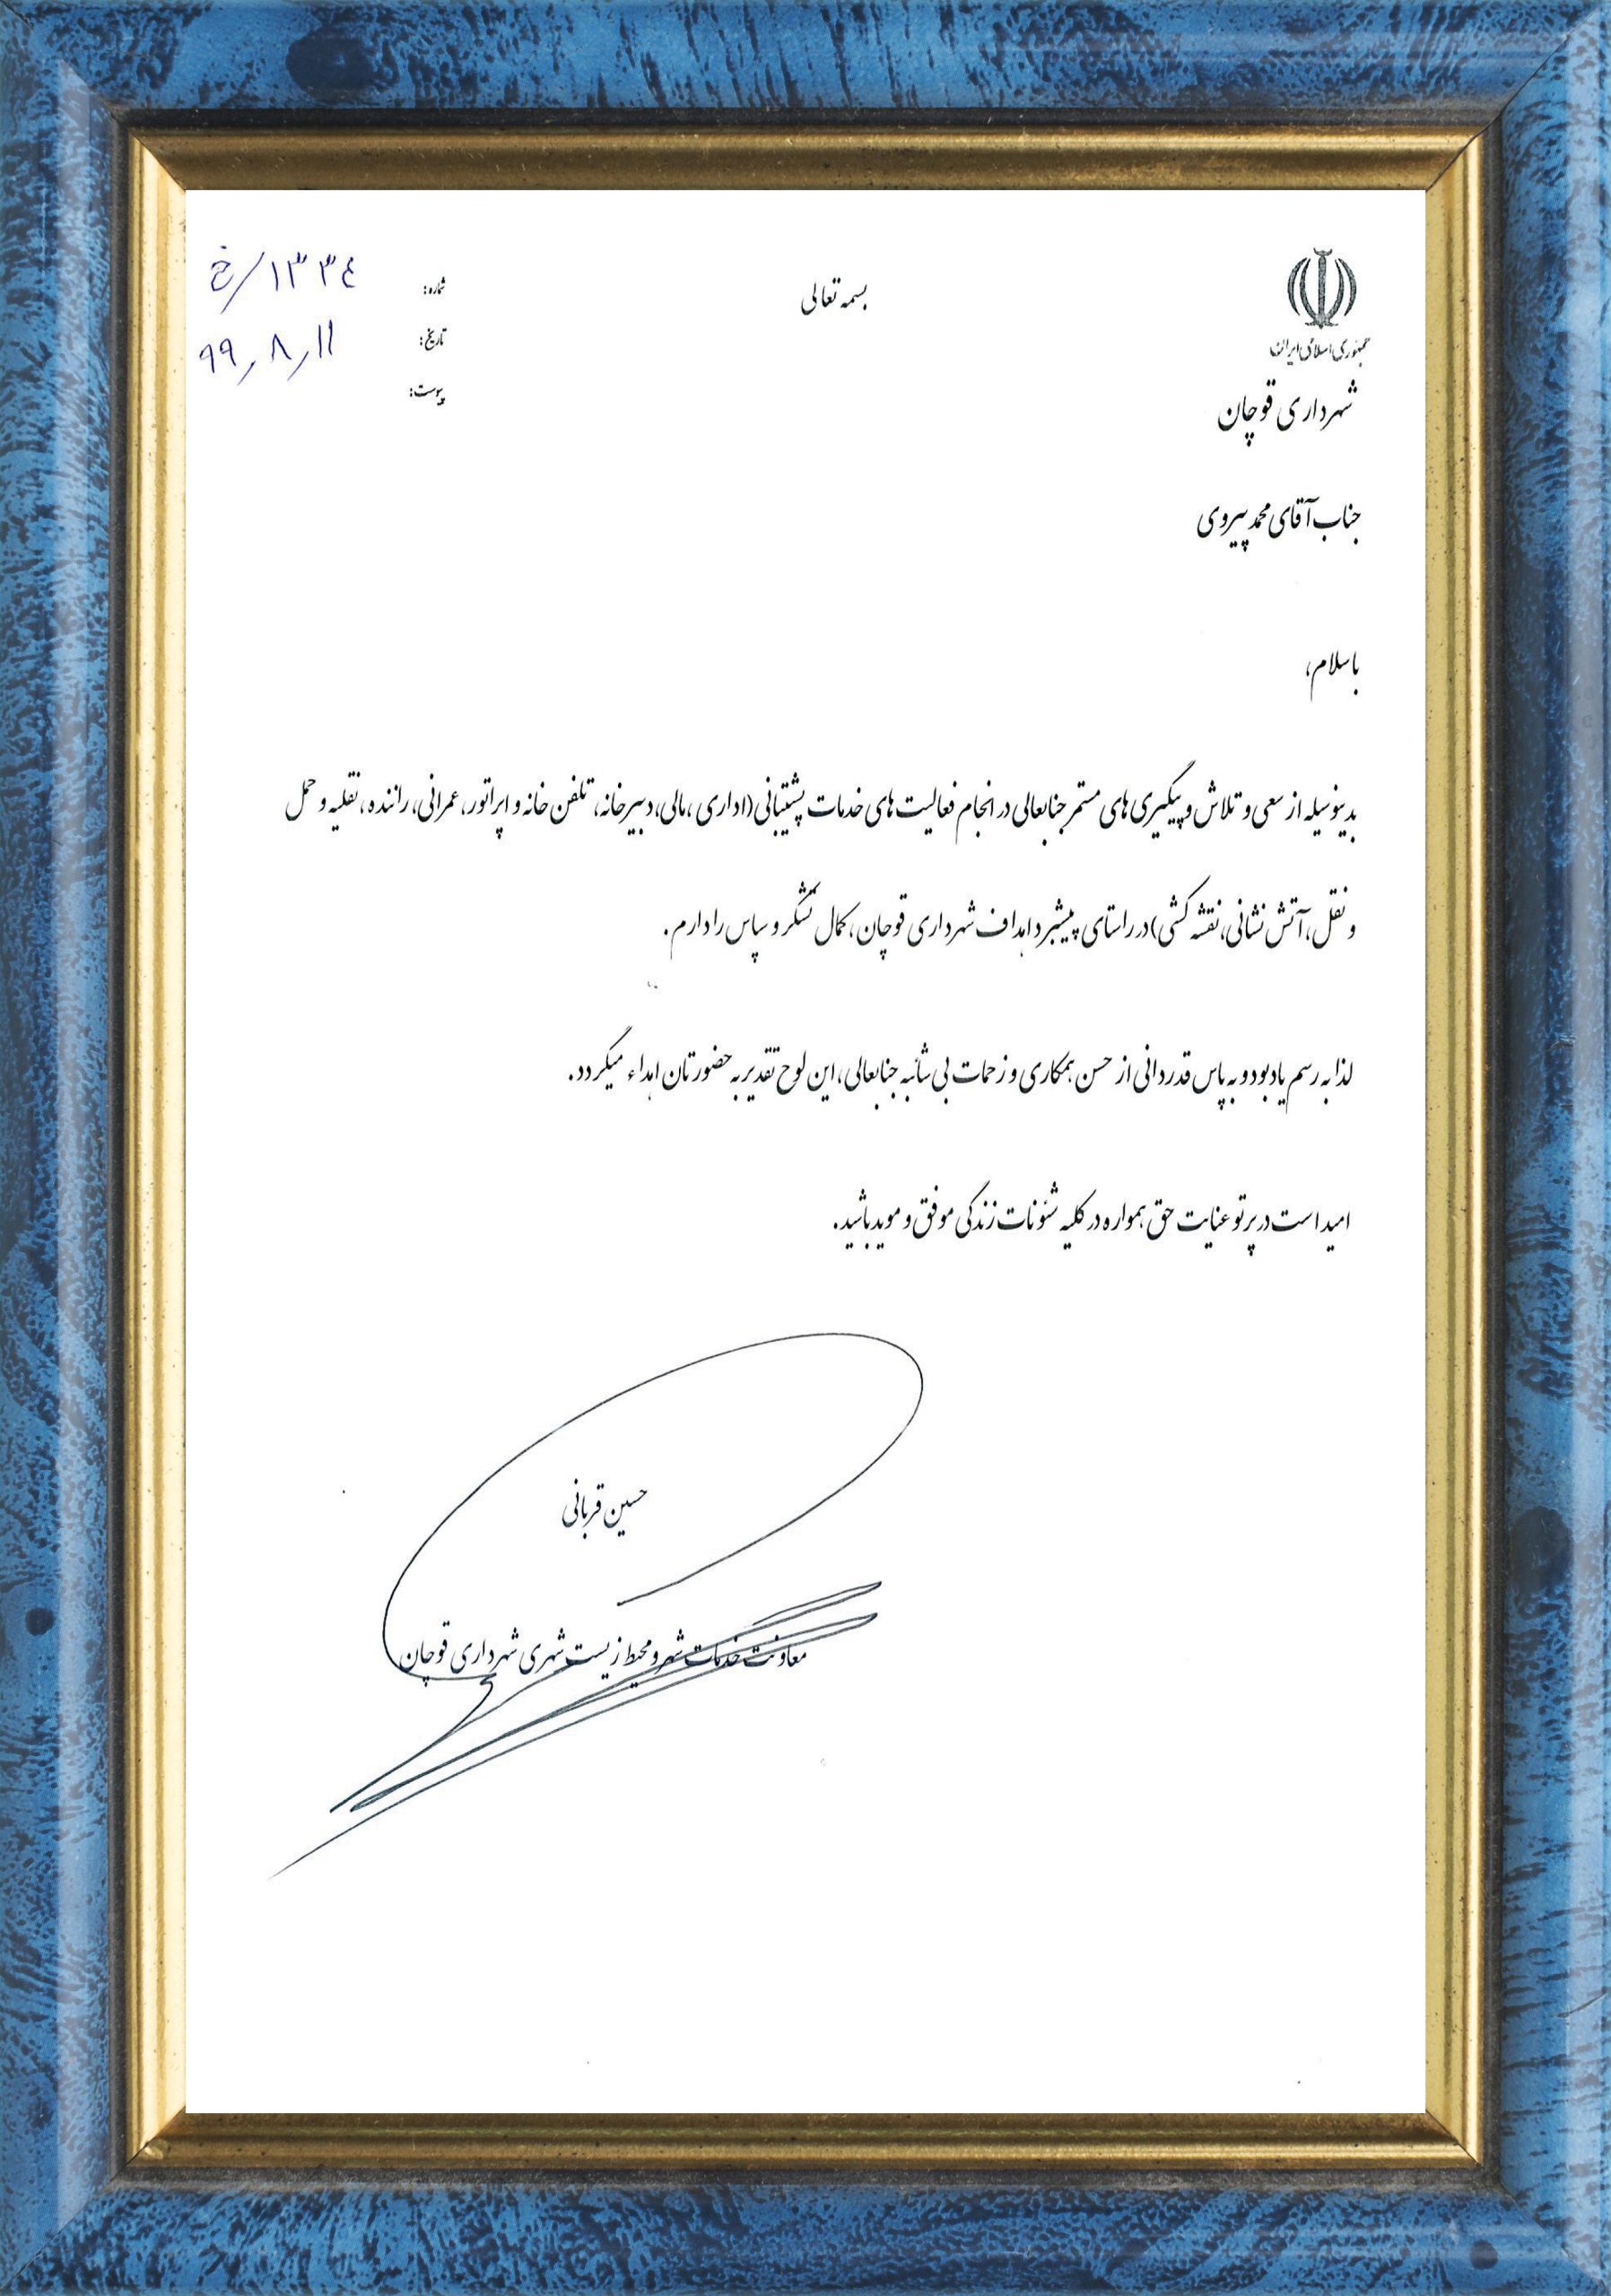 بسمه تعالی
جمهوری اسلامی ایران
شهرداری قوچان
شماره: ۱۳۳۴/خ
تاریخ: ۹۹,۸,۱۱
پیوست:
جناب آقای محمد پیروی
باسلام،
بدینوسیله از سعی و تلاش و پیگیری های مستمر جنابعالی در انجام فعالیت های خدمات پشتیبانی(اداری ،مالی، دبیرخانه، تلفن خانه و اپراتور، عمرانی، راننده، نقلیه و حمل
و نقل، آتش نشانی، نقشه کشی)در راستای پیشبرد اهداف شهرداری قوچان، کمال تشکر و سپاس را دارم.
لذا به رسم یادبود و به پاس قدردانی از حسن همکاری و زحمات بی شائبه جنابعالی، این لوح تقدیر به حضورتان اهداء میگردد.
امید است در پرتو عنایت حق همواره در کلیه شئونات زندگی موفق و موید باشید.
حسین قربانی
معاونت خدمات شهر و محیط زیست شهری شهرداری قوچان